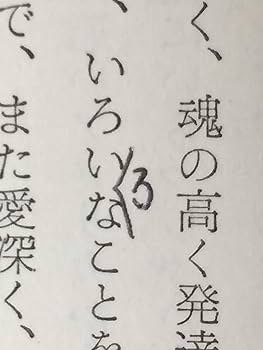 く、魂の高く発達
ろ
、いろいなことを
で、また愛深く、